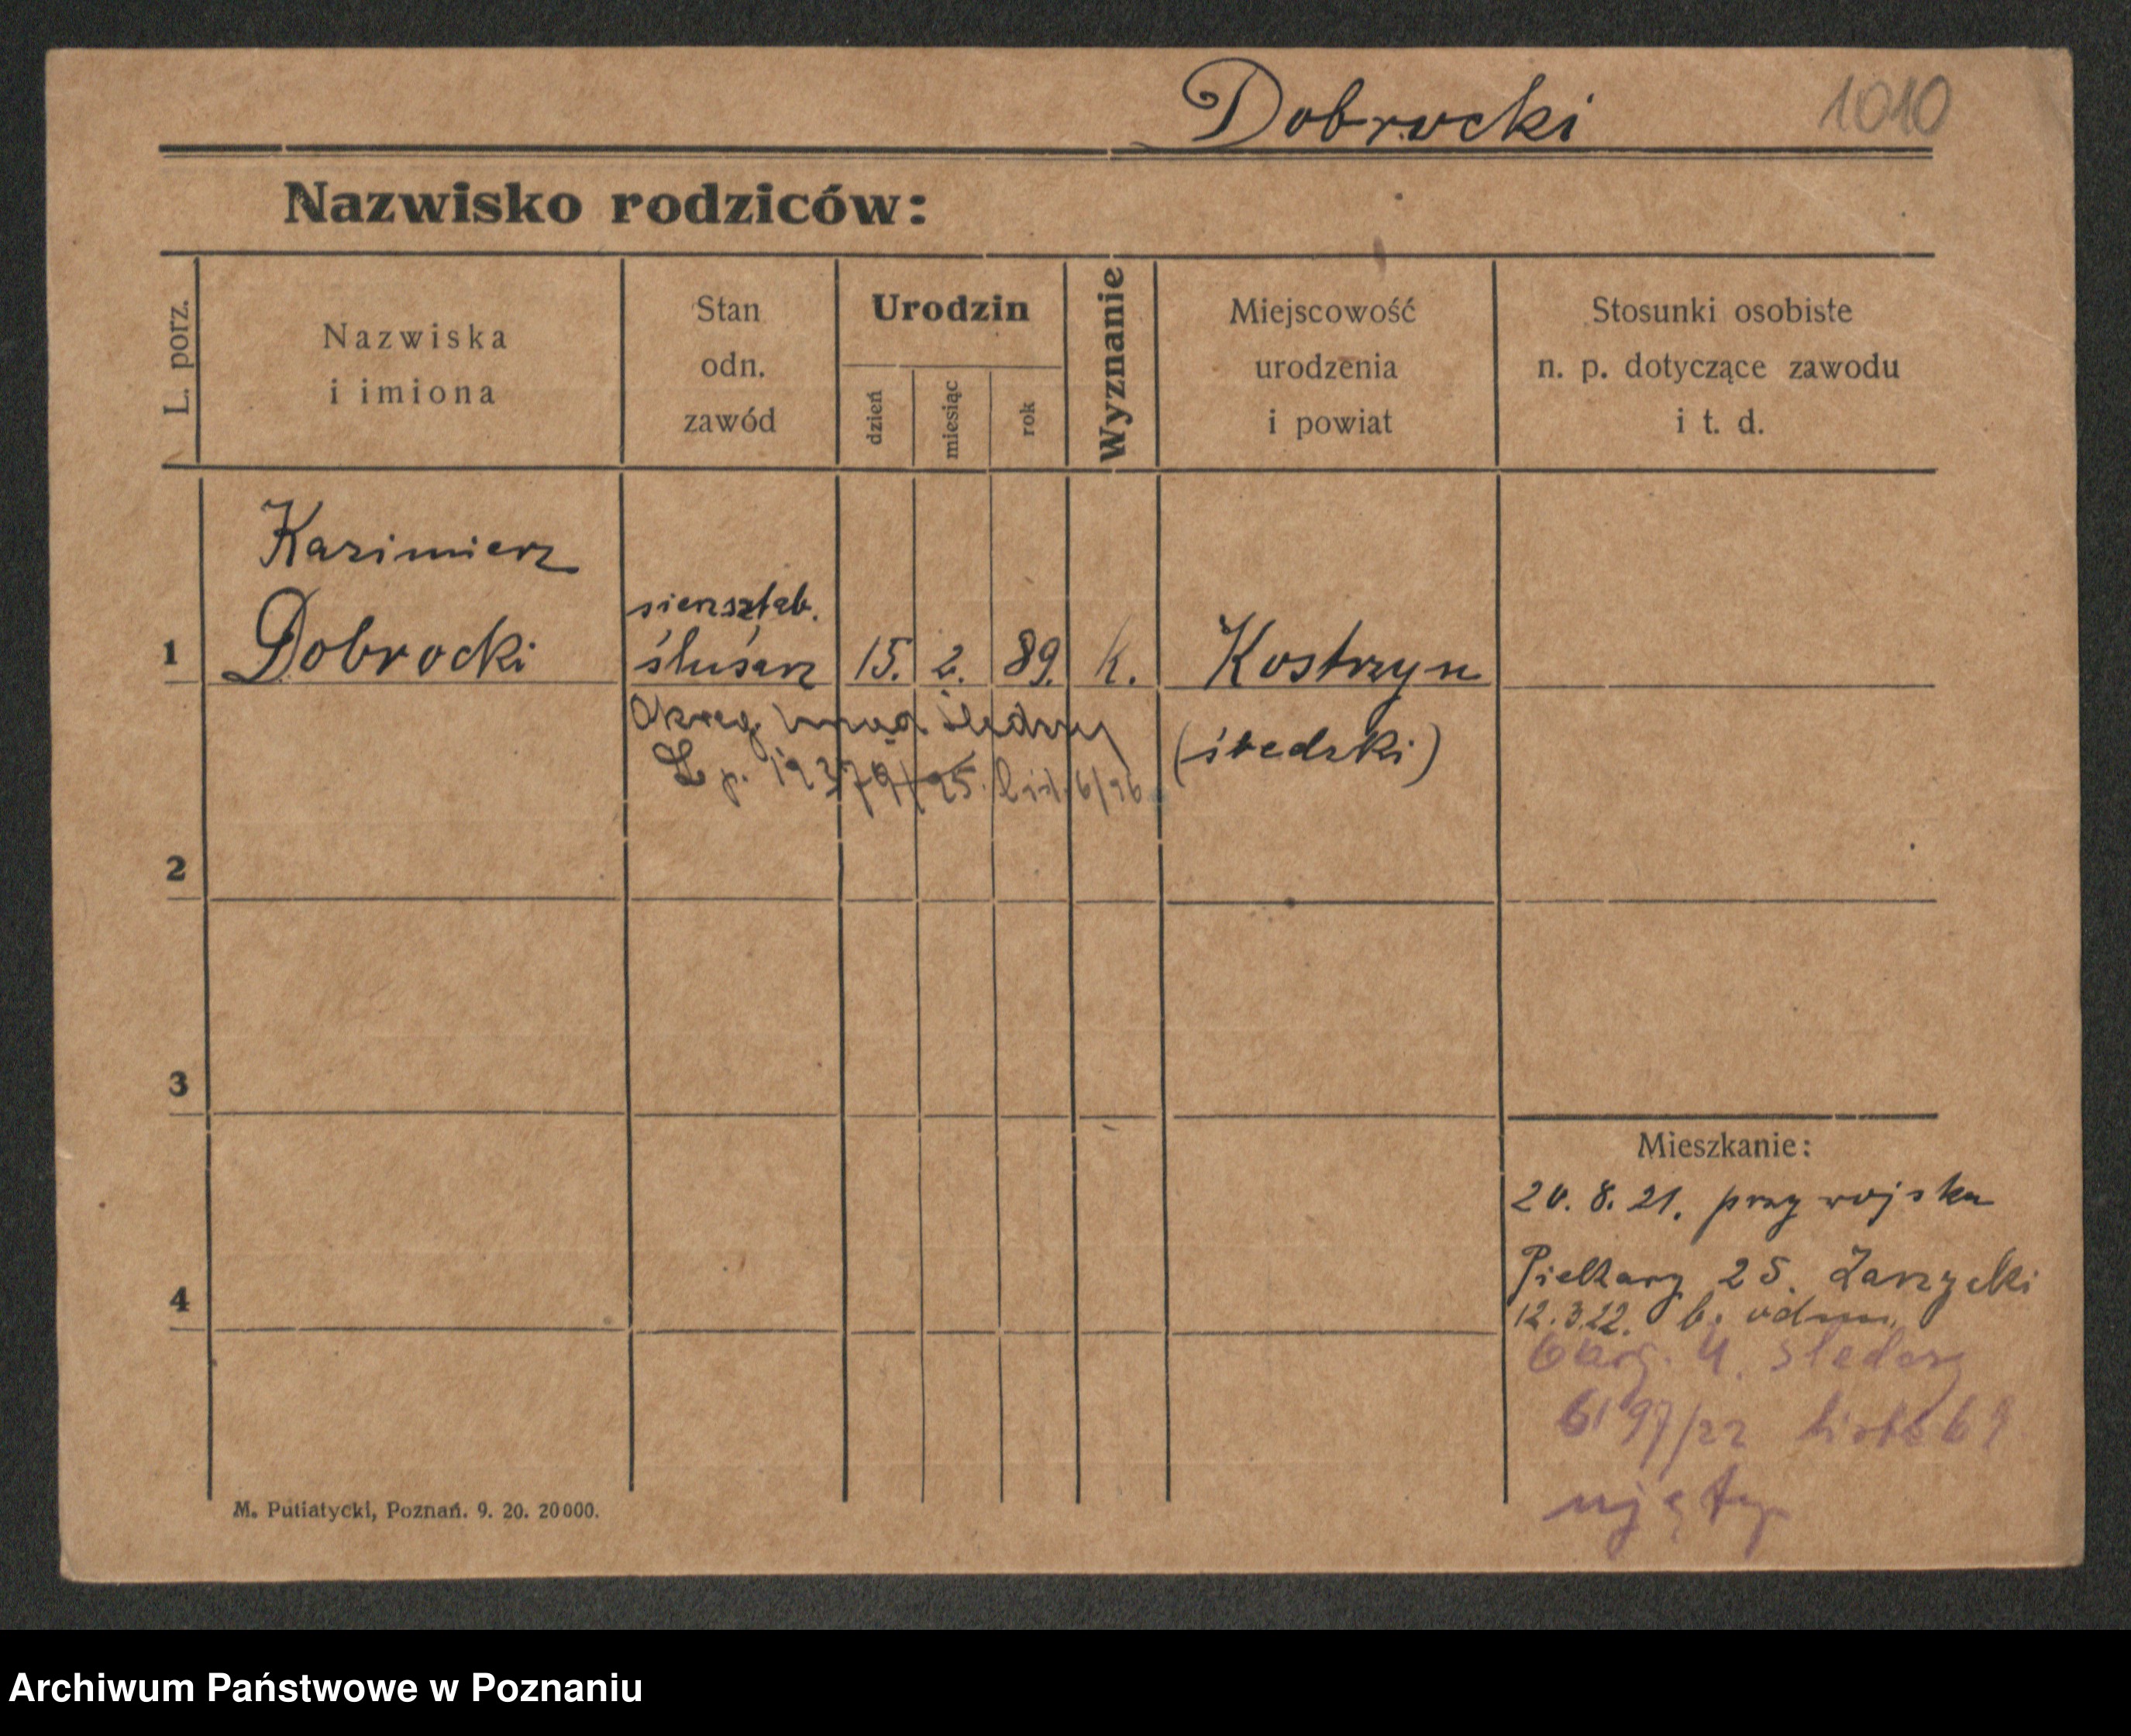 Dobrocki 1010
Nazwisko rodziców:
L. porz.
Nazwiska
i imiona
Stan
odn.
zawód
Urodzin
dzień
miesiąc
rok
Wyznanie
Miejscowość
urodzenia
i powiat
Stosunki osobiste
n. p. dotyczące zawodu
i t. d.
Kazimierz
siersztab.
1 Dobrocki ślusarz 15. 2. 89. k. Kostrzyn
Okręg śledczy
L.p. 12379/25. 6/26
(średzki)
2
3
Mieszkanie:
20. 8. 21. przy wojsku
Piekary 25. Zarzycki
4
12.3.22. b. odm.
Okrg. U. Śledczy
6197/22 lista 69
ujęty
M. Putiatycki, Poznań. 9. 20. 20000.
Archiwum Państwowe w Poznaniu